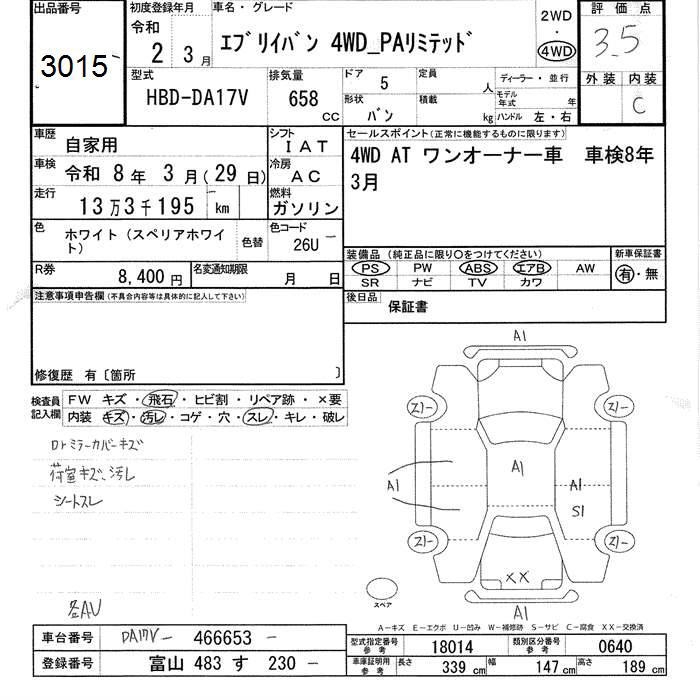 出品番号
3015
初度登録年月
令和
2 3月
車名・グレード
エブリイバン 4WD_PAリミテッド
2WD
・
4WD
評価点
3.5
外装 内装
C
型式
HBD-DA17V
排気量
658 CC
ドア 5
形状 バン
定員 人
積載 kg
ディーラー・並行
モデル年式 年
ハンドル 左・右
車歴 自家用
車検 令和 8年 3月(29日)
走行 13万3千195 km
シフト IAT
冷房 AC
燃料 ガソリン
セールスポイント(正常に機能するものに限ります)
4WD AT ワンオーナー車 車検8年
3月
色 ホワイト(スペリアホワイ
ト)
色替
色コード
26U
R券 8,400円
名変通知期限 月 日
装備品(純正品に限り○をつけてください)
PS PW ABS エアB AW
SR ナビ TV カワ
新車保証書
有・無
後日品 保証書
注意事項申告欄(不具合内容等は具体的に記入して下さい)
修復歴 有〔箇所 〕
検査員
記入欄
FW キズ・飛石・ヒビ割・リペア跡・×要
内装 キズ・汚レ・コゲ・穴・スレ・キレ・破レ
Drミラーカバーキズ
荷室キズ、汚レ
シートスレ
A1
スリー スリー
A1
A1
A1
S1
スリー スリー
XX
A1
スペア
A-キズ E-エクボ U-凹み W-補修跡 S-サビ C-腐食 XX-交換済
車台番号 DA17V- 466653 -
登録番号 富山 483 す 230 -
型式指定番号
参考
18014
類別区分番号
参考
0640
車庫証明用
参考
長さ 339 cm 幅 147 cm 高さ 189 cm